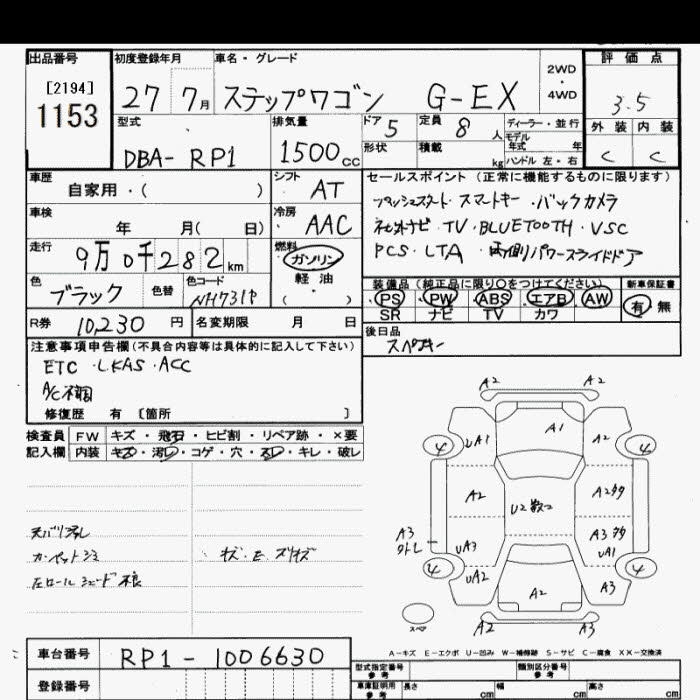 出品番号 初度登録年月 車名・グレード 評価点
[2194]
1153
27 7月 ステップワゴン G-EX
2WD
・
4WD
3.5
型式 排気量 ドア 5 定員 8 人 ディーラー・並行
モデル年式 年
外装 内装
DBA- RP1 1500cc 形状 積載 kg ハンドル 左・右
C C
車歴 シフト セールスポイント (正常に機能するものに限ります)
自家用・( ) AT
プッシュスタート・スマートキー・バックカメラ
車検 冷房
年 月( 日) AAC
ナビ・TV・BLUETOOTH・VSC
走行 燃料
9万0千282km ガソリン
PCS・LTA・両側パワースライドドア
軽油
( )
色 色替 色コード
ブラック NH731P
装備品 (純正品に限り○をつけてください) 新車保証書
PS・PW・ABS・エアB・AW 有・無
SR ナビ TV カワ
R券 10,230円 名変期限 月 日
後日品
注意事項申告欄(不具合内容等は具体的に記入して下さい)
スペアキー
ETC・LKAS・ACC
A/C不調
修復歴 有 〔箇所 〕
検査員 FW キズ・飛石・ヒビ割・リペア跡・×要
記入欄 内装 キズ・汚レ・コゲ・穴・スレ・キレ・破レ
A2 A2
A1
4 UA1 A2 4
A2 U2 A2
天バリ汚レ
カーペットシミ キズ・E・スリキズ
左ロールシェード不良
A3 UA3 A3 UA1
4 UA2 A2 A3 4
スペア A2 A3
A-キズ E-エクボ U-凹み W-補修跡 S-サビ C-腐食 XX-交換済
車台番号 RP1-1006630
型式指定番号 参考 類別区分番号 参考
登録番号
車庫証明用 参考 長さ cm 幅 cm 高さ cm